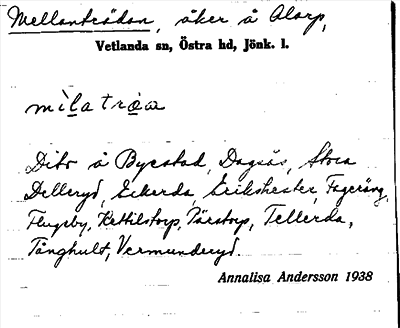 Mellanträdan, åker å Alarp,
Vetlanda sn, Östra hd, Jönk. l.
Dito å Byestad, Dagsås, Stora
Delleryd, Eckerda, Erikshester, Fageräng,
Flugeby, Kettilstorp, Pärstorp, Tellerda,
Tånghult, Vermunderyd.
Annalisa Andersson 1938